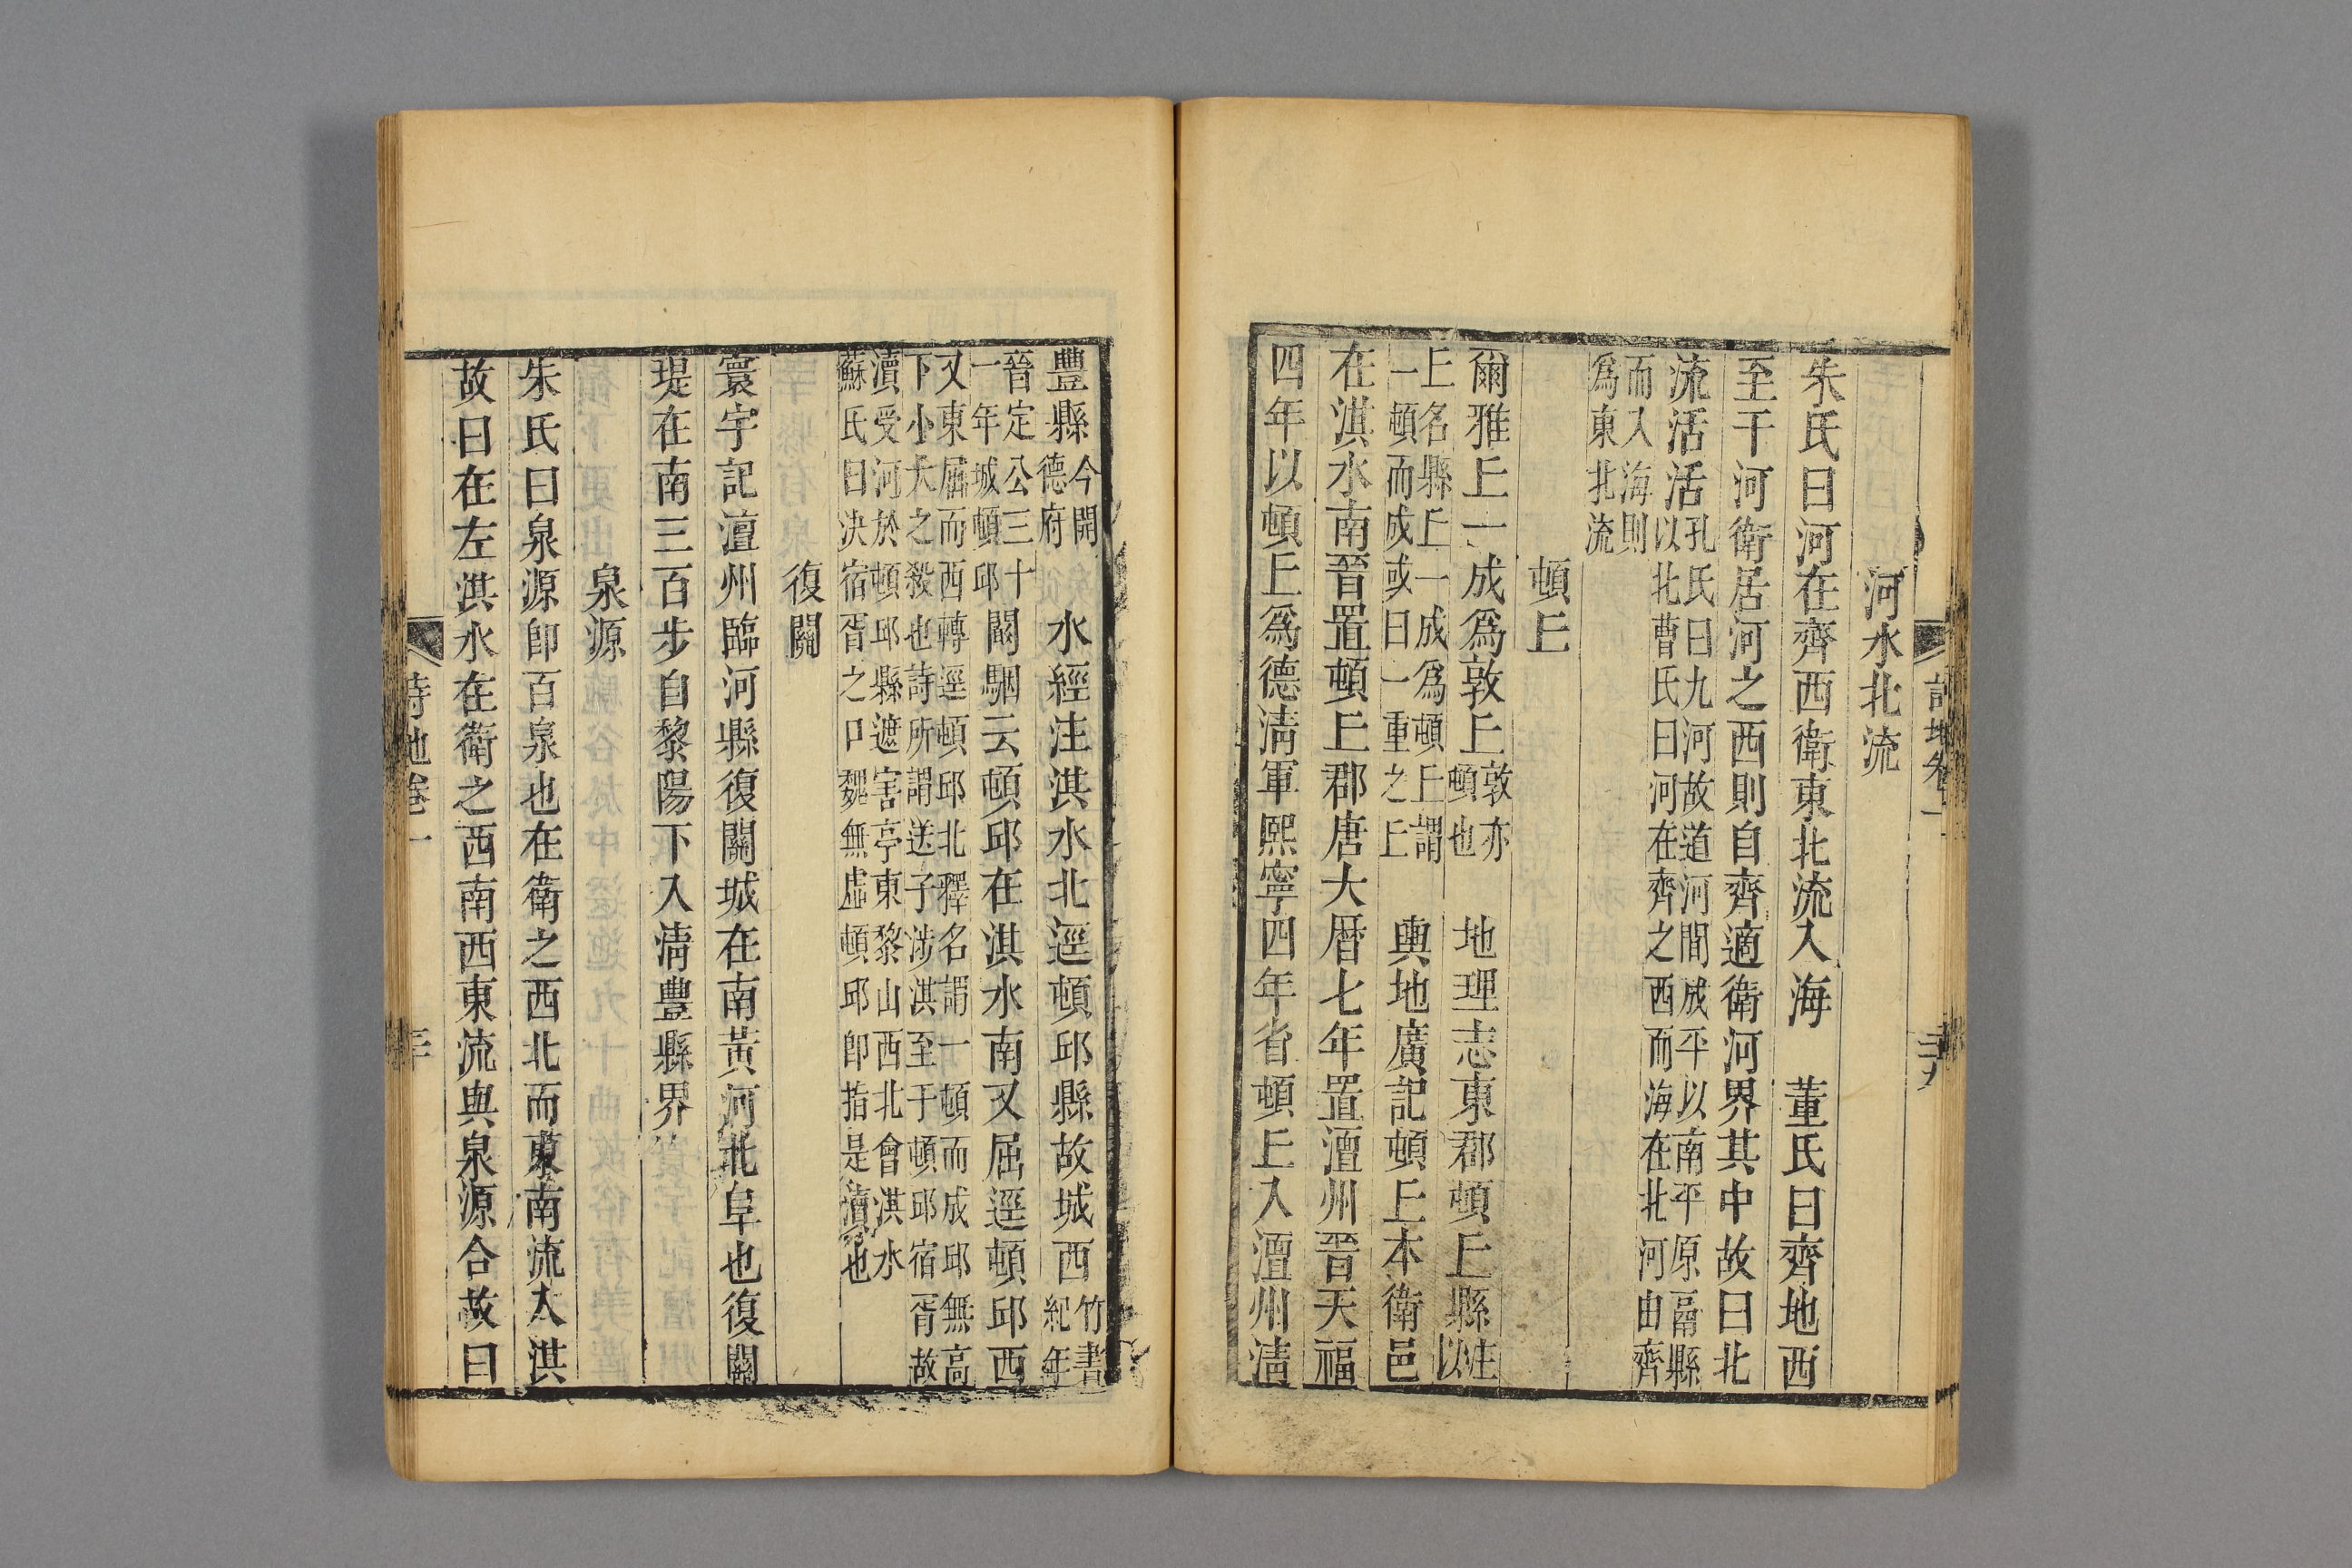 河水北流
朱氏曰河在齊西衛東北流入海　董氏曰齊地西
至于河衛居河之西則自齊適衛河界其中故曰北
流活活孔氏曰九河故道河間成平以南平原鬲縣
以北曹氏曰河在齊之西而海在北河由齊
而入海則
為東北流
頓丘
爾雅丘一成為敦丘敦亦
頓也　地理志東郡頓丘縣註
以
丘名縣丘一成為頓丘謂
一頓而成或曰一重之丘　輿地廣記頓丘本衛邑
在淇水南晉置頓丘郡唐大曆七年置澶州晉天福
四年以頓丘為德清軍熙寧四年省頓丘入澶州清
豐縣今開
德府　水經注淇水北逕頓邱縣故城西竹書
紀年
晉定公三十
一年城頓邱　闞駰云頓邱在淇水南又屈逕頓邱西
又東屈而西轉逕頓邱北釋名謂一頓而成邱無高
下小大之殺也詩所謂送子涉淇至于頓邱宿胥故
瀆受河於頓邱縣遮害亭東黎山西北會淇水
蘇氏曰決宿胥之口魏無虛頓邱即指是瀆也
復關
寰宇記澶州臨河縣復關城在南黃河北阜也復關
堤在南三百步自黎陽下入清豐縣界
泉源
朱氏曰泉源即百泉也在衛之西北而東南流入淇
故曰在左淇水在衛之西南西東流與泉源合故曰
詩地卷一